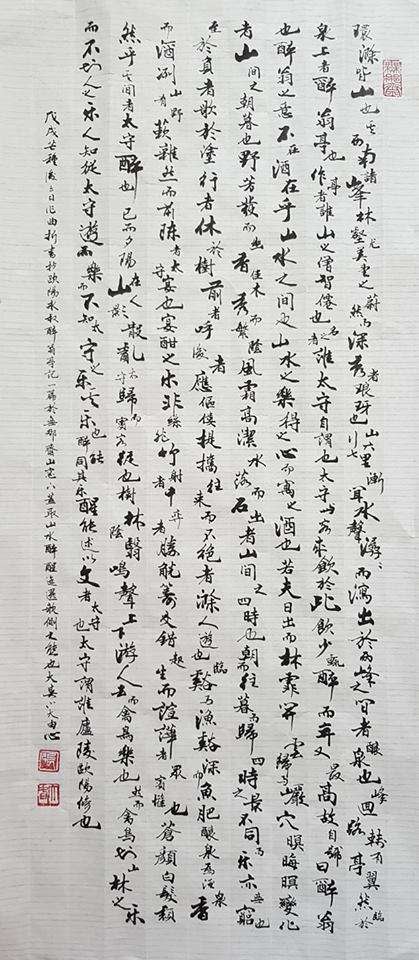 環滁皆山也其西南諸峰林壑尤美望之蔚然而深秀者瑯琊也山行六七里漸聞水聲潺潺而瀉出於兩峰之間者釀泉也峰回路轉有亭翼然臨於
泉上者醉翁亭也作亭者誰山之僧智僊也名之者誰太守自謂也太守與客來飲於此飲少輒醉而年又最高故自號曰醉翁
也醉翁之意不在酒在乎山水之間也山水之樂得之心而寓之酒也若夫日出而林霏開雲歸而巖穴暝晦暝變化
者山間之朝暮也野芳發而幽香佳木秀而繁陰風霜高潔水落而石出者山間之四時也朝而往暮而歸四時之景不同而樂亦無窮也
至於負者歌於塗行者休於樹前者呼後者應傴僂提攜往來而不絕者滁人遊也臨谿而漁谿深魚肥釀泉為酒泉香
而酒冽山野有蔌雜然而前陳者太守宴也宴酣之樂非絲非竹射者中弈者勝觥籌交錯起坐而諠譁者眾賓懽也蒼顏白髮頹
然乎其間者太守醉也已而夕陽在山人影散亂太守歸而賓客從也樹林陰翳鳴聲上下游人去而禽鳥樂也然而禽鳥知山林之樂
而不知人之樂人知從太守遊而樂而不知太守之樂其樂也醉能同其樂醒能述以文者太守也太守謂誰廬陵歐陽修也
戊戌芒種後三日作曲折書抄歐陽永叔醉翁亭記一篇於無邪齋山窗蓋取山水醉醒進退欹側之態也